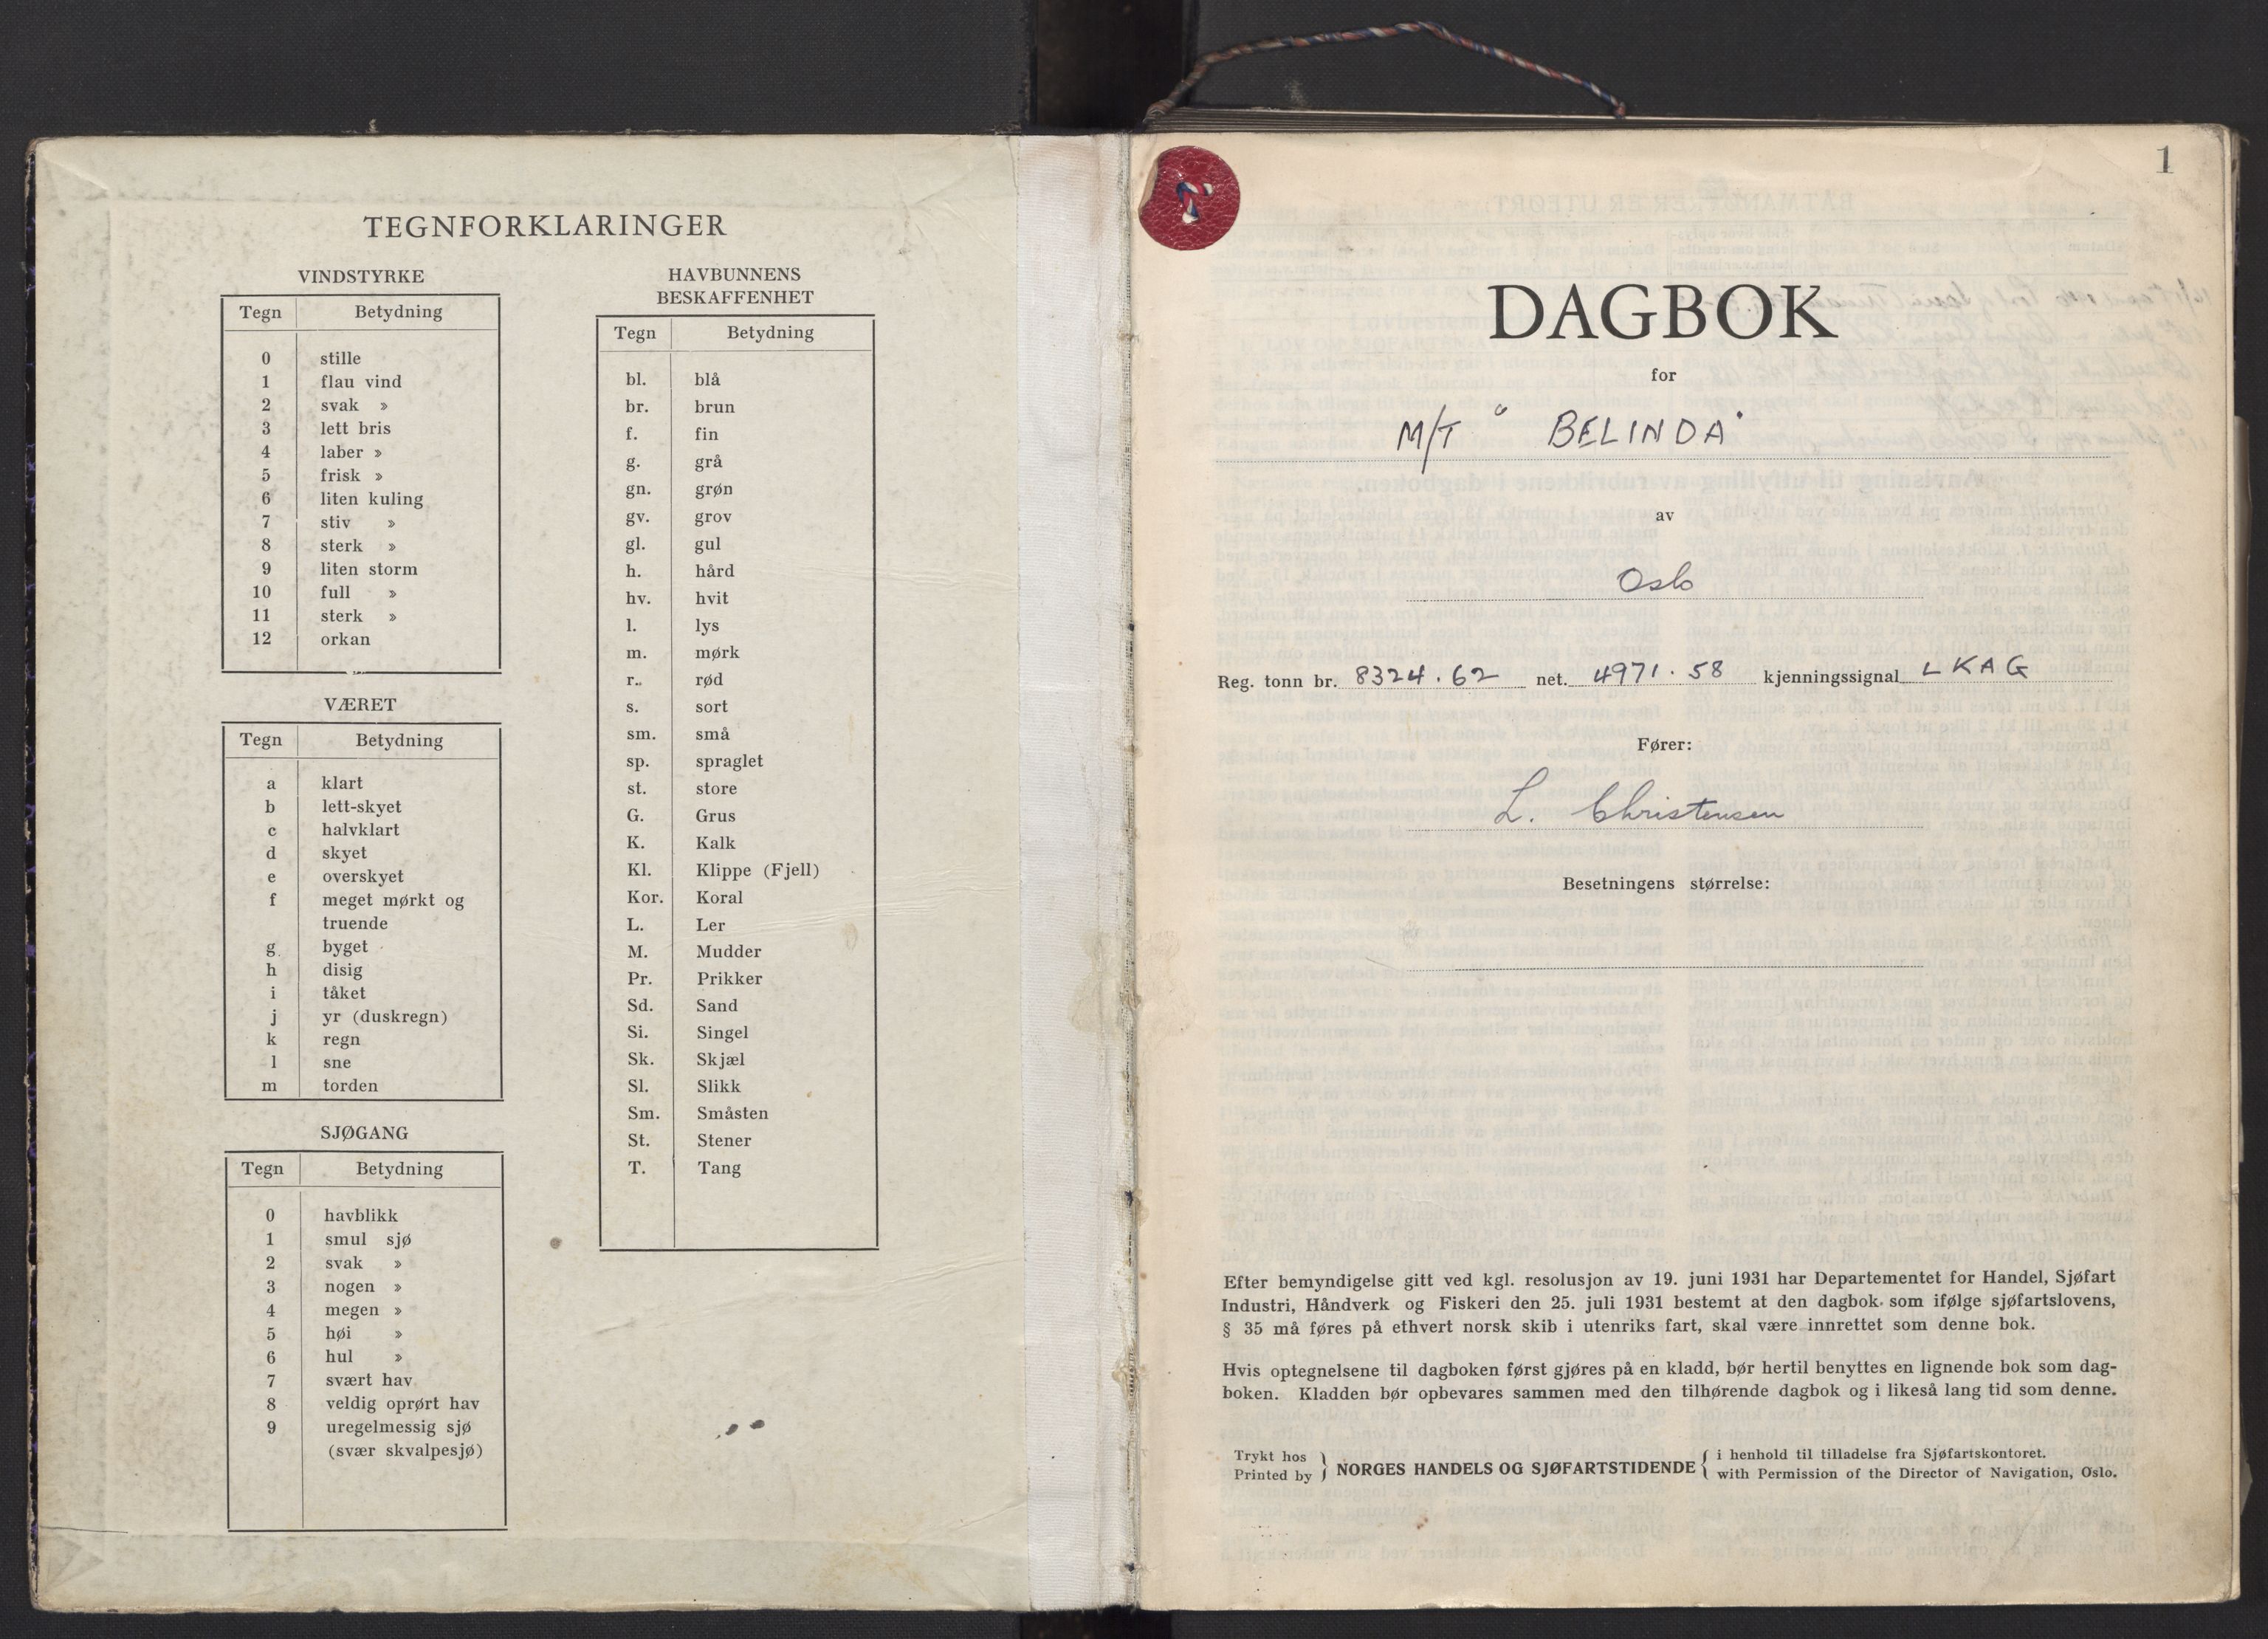 TEGNFORKLARINGER
VINDSTYRKE
Tegn Betydning
0 stille
1 flau vind
2 svak »
3 lett bris
4 laber »
5 frisk »
6 liten kuling
7 stiv »
8 sterk »
9 liten storm
10 full »
11 sterk »
12 orkan
VÆRET
Tegn Betydning
a klart
b lett-skyet
c halvklart
d skyet
e overskyet
f meget mørkt og
truende
g byget
h disig
i tåket
j yr (duskregn)
k regn
l sne
m torden
SJØGANG
Tegn Betydning
0 havblikk
1 smul sjø
2 svak »
3 nogen »
4 megen »
5 høi »
6 hul »
7 svært hav
8 veldig oprørt hav
9 uregelmessig sjø
(svær skvalpesjø)
HAVBUNNENS
BESKAFFENHET
Tegn Betydning
bl. blå
br. brun
f. fin
g. grå
gn. grøn
gv. grov
gl. gul
h. hård
hv. hvit
l. lys
m. mørk
r. rød
s. sort
sm. små
sp. spraglet
st. store
G. Grus
K. Kalk
Kl. Klippe (Fjell)
Kor. Koral
L. Ler
M. Mudder
Pr. Prikker
Sd. Sand
Si. Singel
Sk. Skjæl
Sl. Slikk
Sm. Småsten
St. Stener
T. Tang
1
DAGBOK
for
M/T "BELINDA"
av
Oslo
Reg. tonn br. 8324.62 net. 4971.58 kjenningssignal LKAG
Fører:
L. Christensen
Besetningens størrelse:
Efter bemyndigelse gitt ved kgl. resolusjon av 19. juni 1931 har Departementet for Handel, Sjøfart
Industri, Håndverk og Fiskeri den 25. juli 1931 bestemt at den dagbok som ifølge sjøfartslovens,
§ 35 må føres på ethvert norsk skib i utenriks fart, skal være innrettet som denne bok.
Hvis optegnelsene til dagboken først gjøres på en kladd, bør hertil benyttes en lignende bok som dag-
boken. Kladden bør opbevares sammen med den tilhørende dagbok og i likeså lang tid som denne.
Trykt hos
Printed by
NORGES HANDELS OG SJØFARTSTIDENDE
i henhold til tilladelse fra Sjøfartskontoret.
with Permission of the Director of Navigation, Oslo.